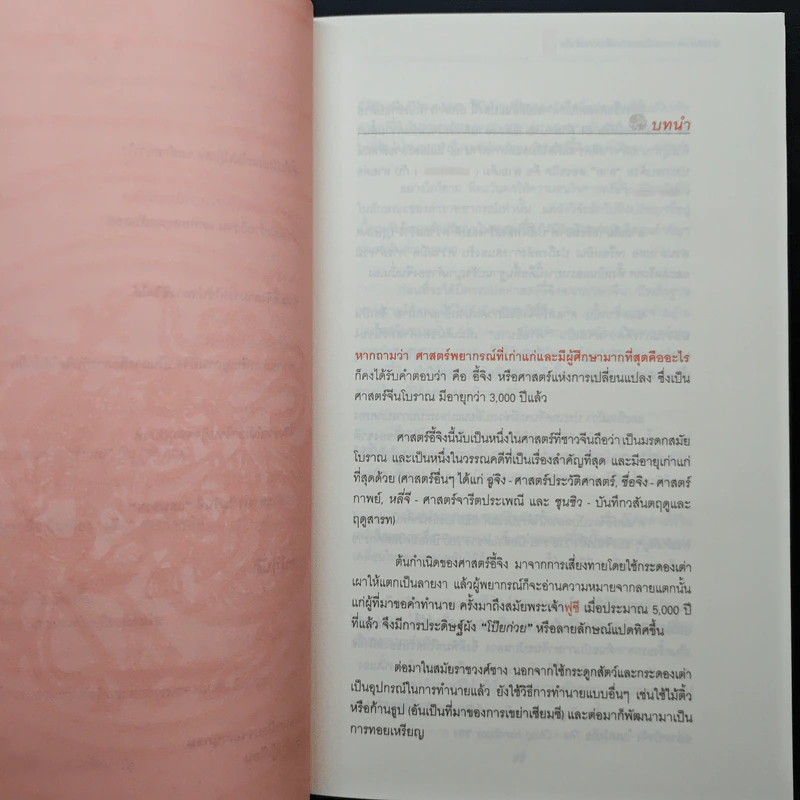 บทนำ
หากถามว่า ศาสตร์พยากรณ์ที่เก่าแก่และมีผู้ศึกษามากที่สุดคืออะไร
ก็คงได้รับคำตอบว่า คือ อี้จิง หรือศาสตร์แห่งการเปลี่ยนแปลง ซึ่งเป็น
ศาสตร์จีนโบราณ มีอายุกว่า 3,000 ปีแล้ว
ศาสตร์อี้จิงนี้นับเป็นหนึ่งในศาสตร์ที่ชาวจีนถือว่า เป็นมรดกสมัย
โบราณ และเป็นหนึ่งในวรรณคดีที่เป็นเรื่องสำคัญที่สุด และมีอายุเก่าแก่
ที่สุดด้วย (ศาสตร์อื่นๆ ได้แก่ อูจิง - ศาสตร์ประวัติศาสตร์, ซือจิง - ศาสตร์
กาพย์, หลี่จี - ศาสตร์จารีตประเพณี และ ชุนชิว - บันทึกวสันตฤดูและ
ฤดูสารท)
ต้นกำเนิดของศาสตร์อี้จิง มาจากการเสี่ยงทายโดยใช้กระดองเต่า
เผาให้แตกเป็นลายงา แล้วผู้พยากรณ์ก็จะอ่านความหมายจากลายแตกนั้น
แก่ผู้ที่มาขอคำทำนาย ครั้งมาถึงสมัยพระเจ้าฟูซี เมื่อประมาณ 5,000 ปี
ที่แล้ว จึงมีการประดิษฐ์ผัง “โป๊ยก่วย” หรือลายลักษณ์แปดทิศขึ้น
ต่อมาในสมัยราชวงศ์ซาง นอกจากใช้กระดูกสัตว์และกระดองเต่า
เป็นอุปกรณ์ในการทำนายแล้ว ยังใช้วิธีการทำนายแบบอื่นๆ เช่นใช้ไม้ติ้ว
หรือก้านธูป (อันเป็นที่มาของการเขย่าเซียมซี) และต่อมาก็พัฒนามาเป็น
การทอยเหรียญ